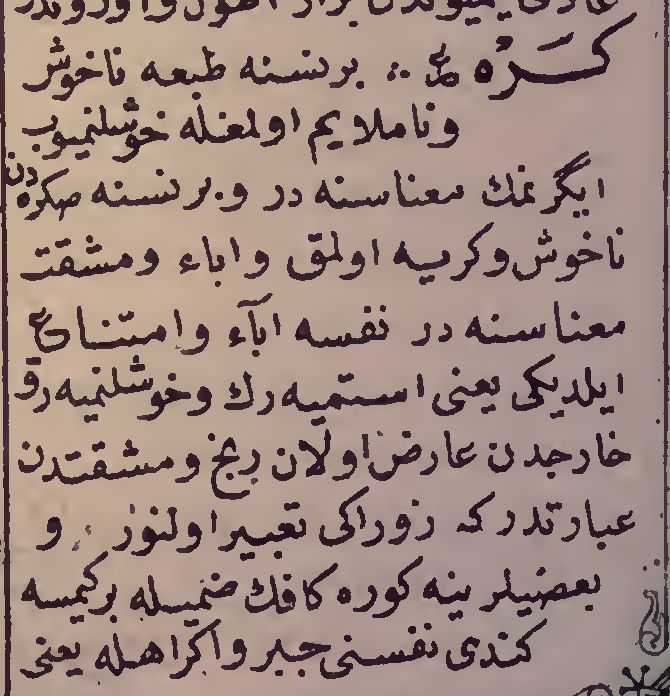 كَرُهَ ع بر نسنه طبعه ناخوش
وناملايم اولمغله خوشلنميوب
ايگرنمك معناسنه در و بر نسنه صكره دن
ناخوش وكريه اولمق واباء ومشقت
معناسنه در نفسه ابآء وامتناع
ايلديكى يعنى استميه رك وخوشلنميه رق
خارجدن عارض اولان رنج ومشقتدن
عبارتدر كه زوراكى تعبير اولنور و
بعضيلر ينه كوره كافك ضميله بر كيمسه
كندى نفسنى جبر واكراهله يعنى